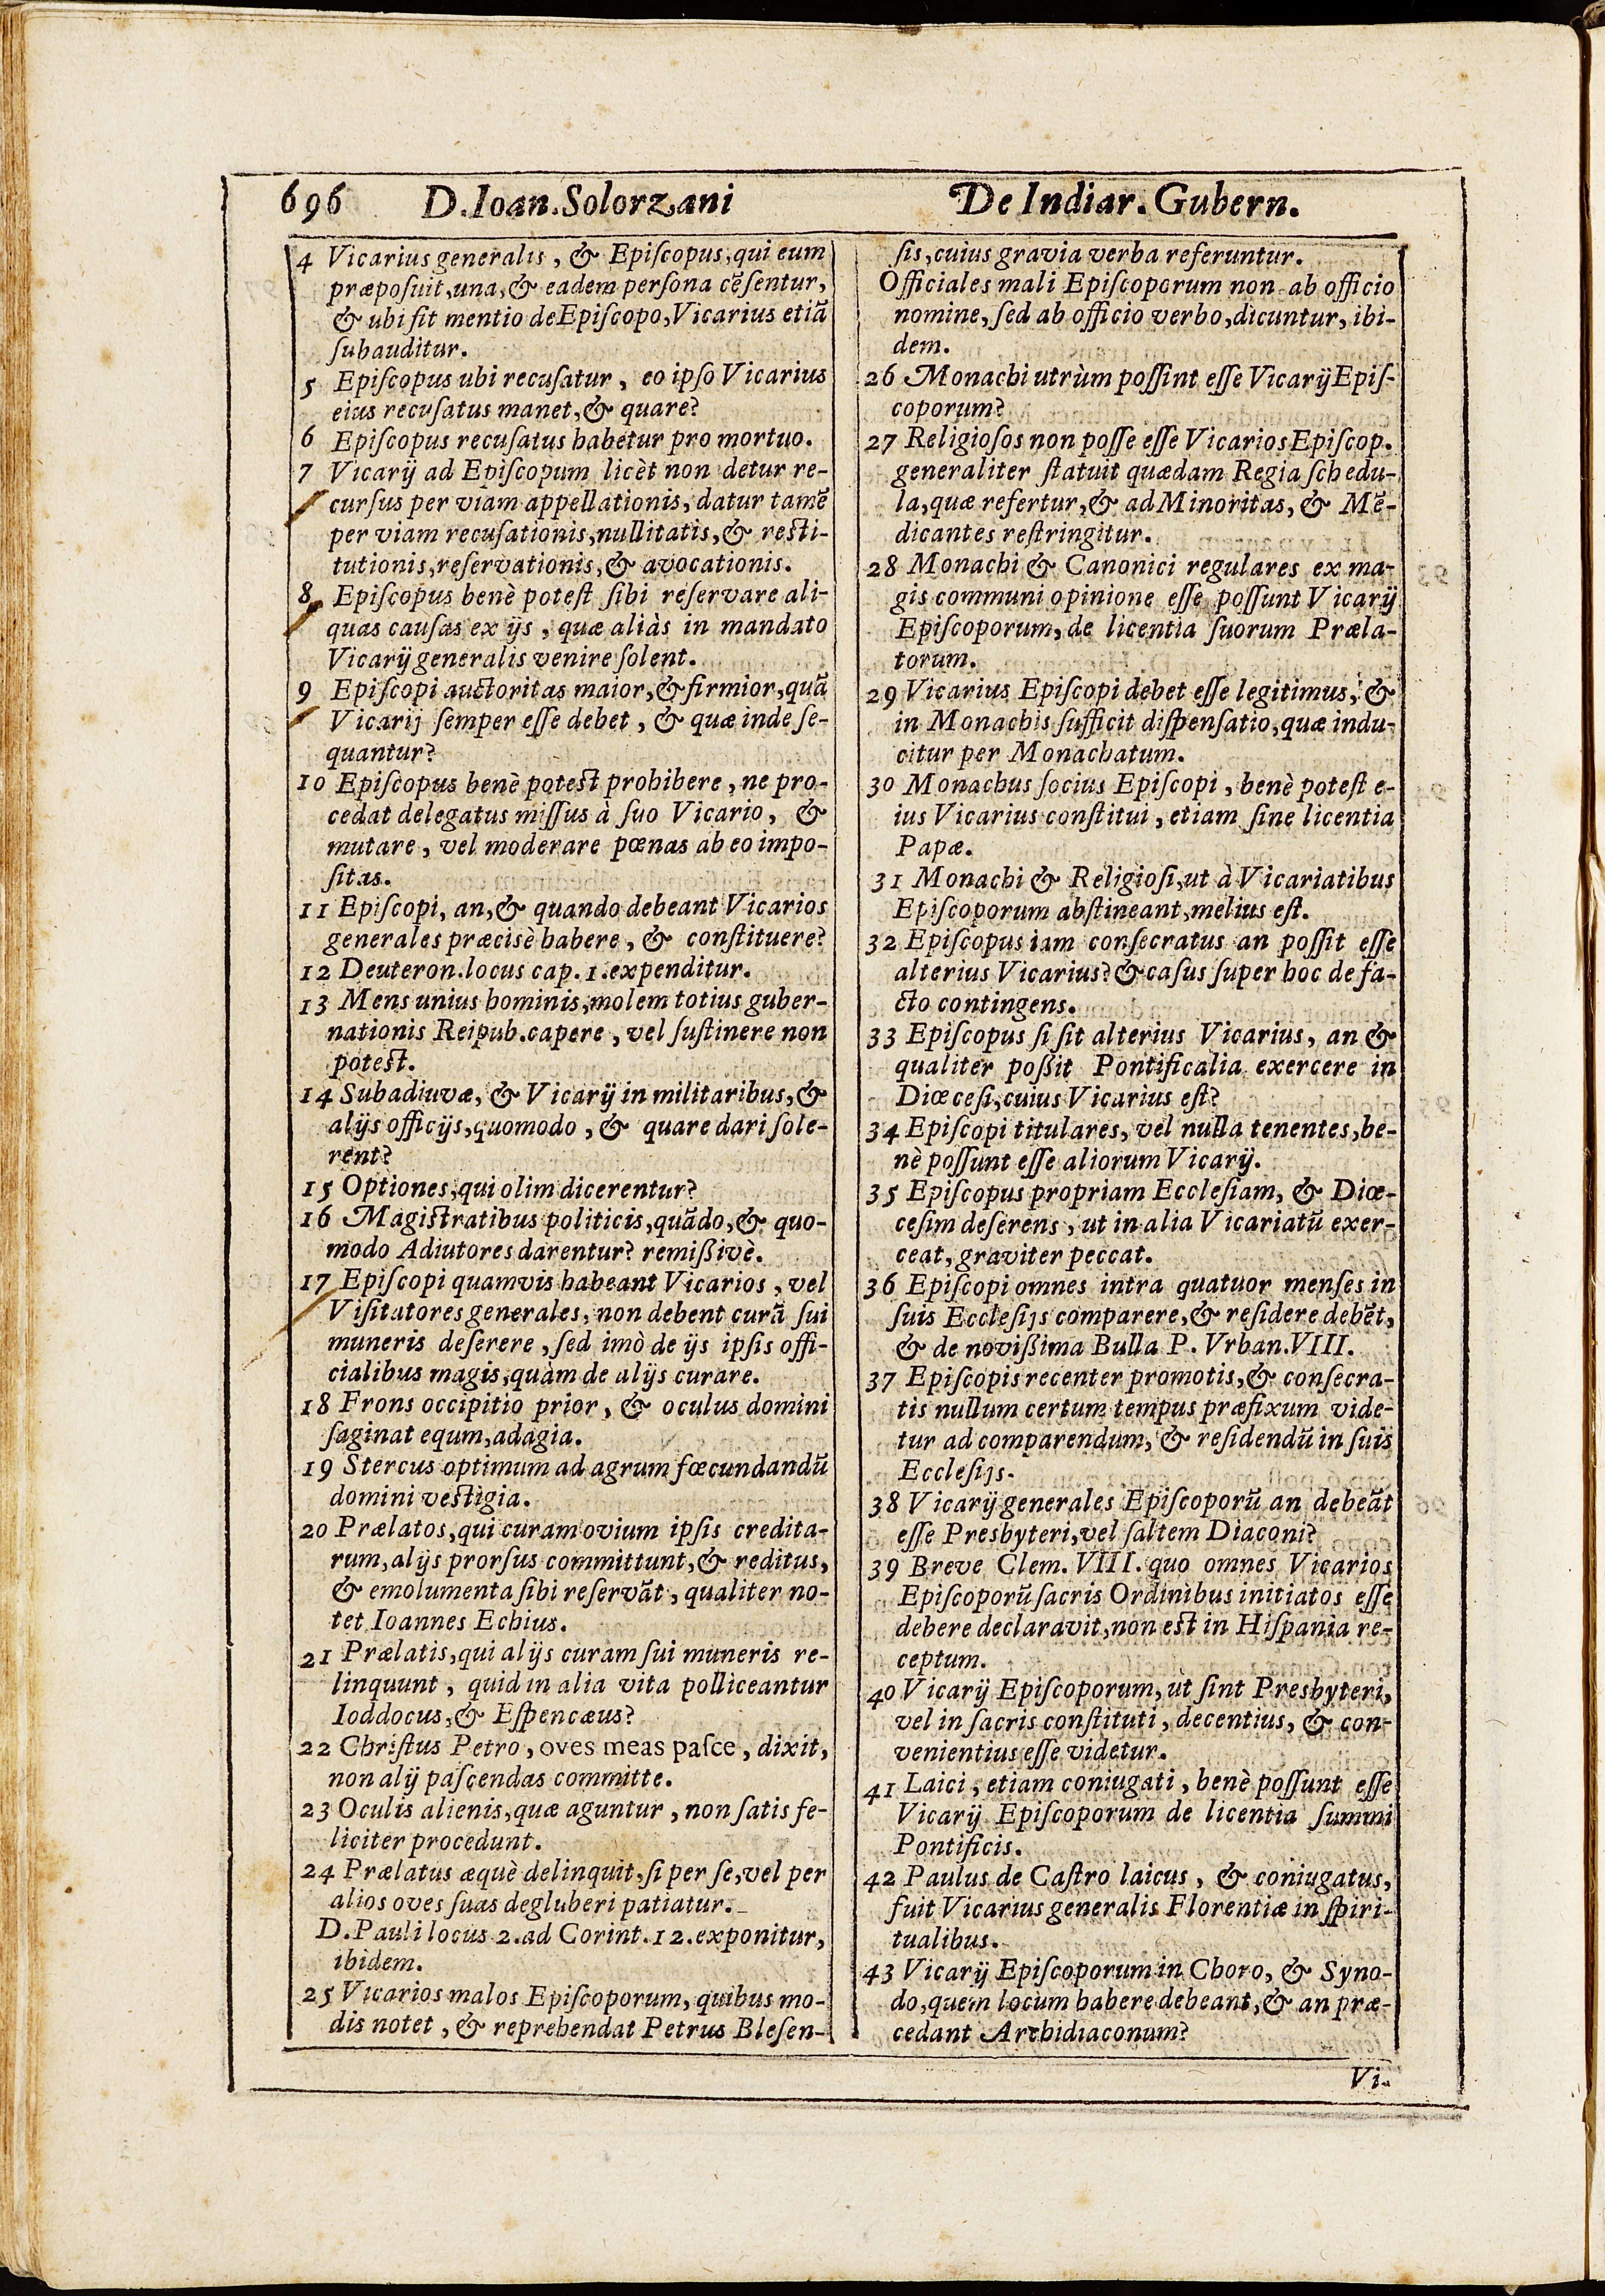 696 D.Ioan.Solorzani De Indiar.Gubern.
4 Vicarius generalis, & Epiſcopus,qui eum
præpoſuit,una,& eadem perſona cẽſentur,
& ubi fit mentio de Epiſcopo,Vicarius etiã
ſubauditur.
5 Epiſcopus ubi recuſatur, eo ipſo Vicarius
eius recuſatus manet,& quare?
6 Epiſcopus recuſatus habetur pro mortuo.
7 Vicarij ad Epiſcopum licèt non detur re-
curſus per viam appellationis, datur tamẽ
per viam recuſationis,nullitatis,& reſti-
tutionis,reſervationis,& avocationis.
8 Epiſcopus benè poteſt ſibi reſervare ali-
quas cauſas ex ijs, quæ aliàs in mandato
Vicarij generalis venire ſolent.
9 Epiſcopi auctoritas maior,& firmior,quã
Vicarij ſemper eſſe debet, & quæ inde ſe-
quantur?
10 Epiſcopus benè poteſt prohibere, ne pro-
cedat delegatus miſſus à ſuo Vicario, &
mutare, vel moderare pœnas ab eo impo-
ſitas.
11 Epiſcopi, an,& quando debeant Vicarios
generales præcisè habere, & conſtituere?
12 Deuteron.locus cap.1.expenditur.
13 Mens unius hominis,molem totius guber-
nationis Reipub.capere, vel ſuſtinere non
poteſt.
14 Subadiuvæ, & Vicarij in militaribus,&
alijs officijs,quomodo, & quare dari ſole-
rent?
15 Optiones,qui olim dicerentur?
16 Magiſtratibus politicis,quãdo,& quo-
modo Adiutores darentur? remißivè.
17 Epiſcopi quamvis habeant Vicarios, vel
Viſitatores generales, non debent curã ſui
muneris deſerere, ſed imò de ijs ipſis offi-
cialibus magis,quàm de alijs curare.
18 Frons occipitio prior, & oculus domini
ſaginat equm,adagia.
19 Stercus optimum ad agrum fœcundandũ
domini veſtigia.
20 Prælatos,qui curam ovium ipſis credita-
rum,alijs prorſus committunt,& reditus,
& emolumenta ſibi reſervãt, qualiter no-
tet Ioannes Echius.
21 Prælatis,qui alijs curam ſui muneris re-
linquunt, quid in alia vita polliceantur
Ioddocus,& Eſpencæus?
22 Chriſtus Petro, oves meas paſce, dixit,
non alij paſcendas committe.
23 Oculis alienis,quæ aguntur, non ſatis fe-
liciter procedunt.
24 Prælatus æquè delinquit,ſi per ſe,vel per
alios oves ſuas degluberi patiatur.
D.Pauli locus 2.ad Corint.12.exponitur,
ibidem.
25 Vicarios malos Epiſcoporum, quibus mo-
dis notet, & reprehendat Petrus Bleſen-
ſis,cuius gravia verba referuntur.
Officiales mali Epiſcoporum non ab officio
nomine, ſed ab officio verbo,dicuntur, ibi-
dem.
26 Monachi utrùm poſſint eſſe Vicarij Epiſ-
coporum?
27 Religioſos non poſſe eſſe Vicarios Epiſcop.
generaliter ſtatuit quædam Regia ſchedu-
la,quæ refertur,& ad Minoritas, & Mẽ-
dicantes reſtringitur.
28 Monachi & Canonici regulares ex ma-
gis communi opinione eſſe poſſunt Vicarij
Epiſcoporum, de licentia ſuorum Præla-
torum.
29 Vicarius Epiſcopi debet eſſe legitimus, &
in Monachis ſufficit diſpenſatio,quæ indu-
citur per Monachatum.
30 Monachus ſocius Epiſcopi, benè poteſt e-
ius Vicarius conſtitui, etiam ſine licentia
Papæ.
31 Monachi & Religioſi,ut à Vicariatibus
Epiſcoporum abſtineant,melius eſt.
32 Epiſcopus iam conſecratus an poſſit eſſe
alterius Vicarius?& caſus ſuper hoc de fa-
cto contingens.
33 Epiſcopus ſi ſit alterius Vicarius, an &
qualiter poßit Pontificalia exercere in
Diœceſi,cuius Vicarius eſt?
34 Epiſcopi titulares, vel nulla tenentes,be-
nè poſſunt eſſe aliorum Vicarij.
35 Epiſcopus propriam Eccleſiam, & Diœ-
ceſim deſerens, ut in alia Vicariatũ exer-
ceat, graviter peccat.
36 Epiſcopi omnes intra quatuor menſes in
ſuis Eccleſijs comparere,& reſidere debẽt,
& de novißima Bulla P. Vrban.VIII.
37 Epiſcopis recenter promotis,& conſecra-
tis nullum certum tempus præfixum vide-
tur ad comparendum, & reſidendũ in ſuis
Eccleſijs.
38 Vicarij generales Epiſcoporũ an debeãt
eſſe Presbyteri,vel ſaltem Diaconi?
39 Breve Clem.VIII.quo omnes Vicarios
Epiſcoporũ ſacris Ordinibus initiatos eſſe
debere declaravit,non eſt in Hiſpania re-
ceptum.
40 Vicarij Epiſcoporum, ut ſint Presbyteri,
vel in ſacris conſtituti, decentius, & con-
venientius eſſe videtur.
41 Laici, etiam coniugati, benè poſſunt eſſe
Vicarij Epiſcoporum de licentia ſummi
Pontificis.
42 Paulus de Caſtro laicus, & coniugatus,
fuit Vicarius generalis Florentiæ in ſpiri-
tualibus.
43 Vicarij Epiſcoporum in Choro, & Syno-
do,quem locum habere debeant,& an præ-
cedant Archidiaconum?
Vi-